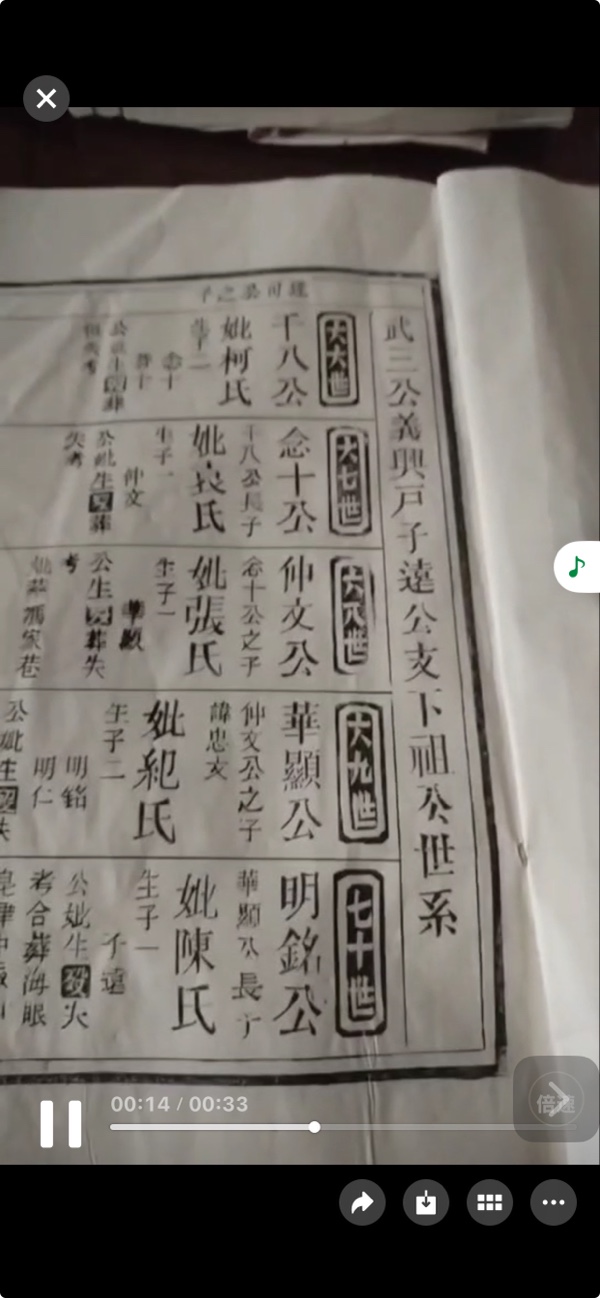 武三公義興戶子達公支下祖公世系
達可公之子
六六世
千八公
妣柯氏
生子二
念十
六七世
念十公
千八公長子
妣袁氏
生子一
仲文
公妣生歿葬
失考
六八世
仲文公
念十公之子
妣張氏
生子一
華顯
公生歿葬失
考
妣葬馮家巷
六九世
華顯公
仲文公之子
諱忠文
妣紀氏
生子二
明銘
明仁
公妣生歿
七十世
明銘公
華顯公長子
妣陳氏
生子一
子遠
公妣生歿失
考合葬海眼
00:14 / 00:33
倍速